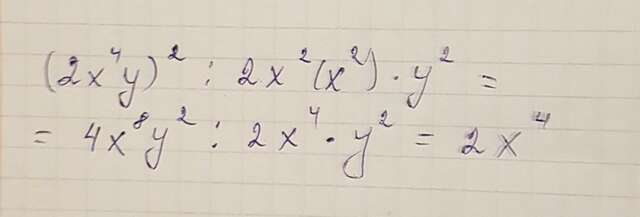 (2x⁴y)² : 2x²(x²) · y² =
= 4x⁸y² : 2x⁴ · y² = 2x⁴